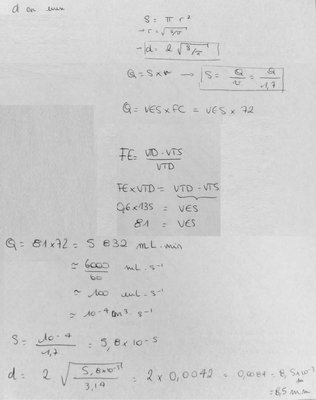 d en mm
S = π r²
→ r = √S/π
→ d = 2 √S/π
Q = S × v → S = Q/v = Q/1,7
Q = VES × FC = VES × 72
FE = VTD - VTS / VTD
FE × VTD = VTD - VTS
0,6 × 135 = VES
81 = VES
Q = 81 × 72 = 5 832 mL.min
≈ 6000/60 mL.s⁻¹
≈ 100 mL.s⁻¹
≈ 10⁻⁴ m³.s⁻¹
S = 10⁻⁴/1,7 = 5,8 × 10⁻⁵
d = 2 √5,8×10⁻⁵/3,14 = 2 × 0,0042 = 0,0084 = 8,5×10⁻³ m
= 8,5 mm